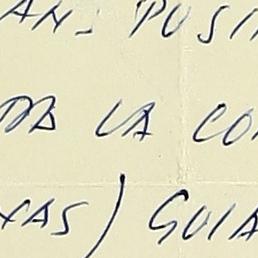 AN. POSI
DA LA CO
XAS) GUIA